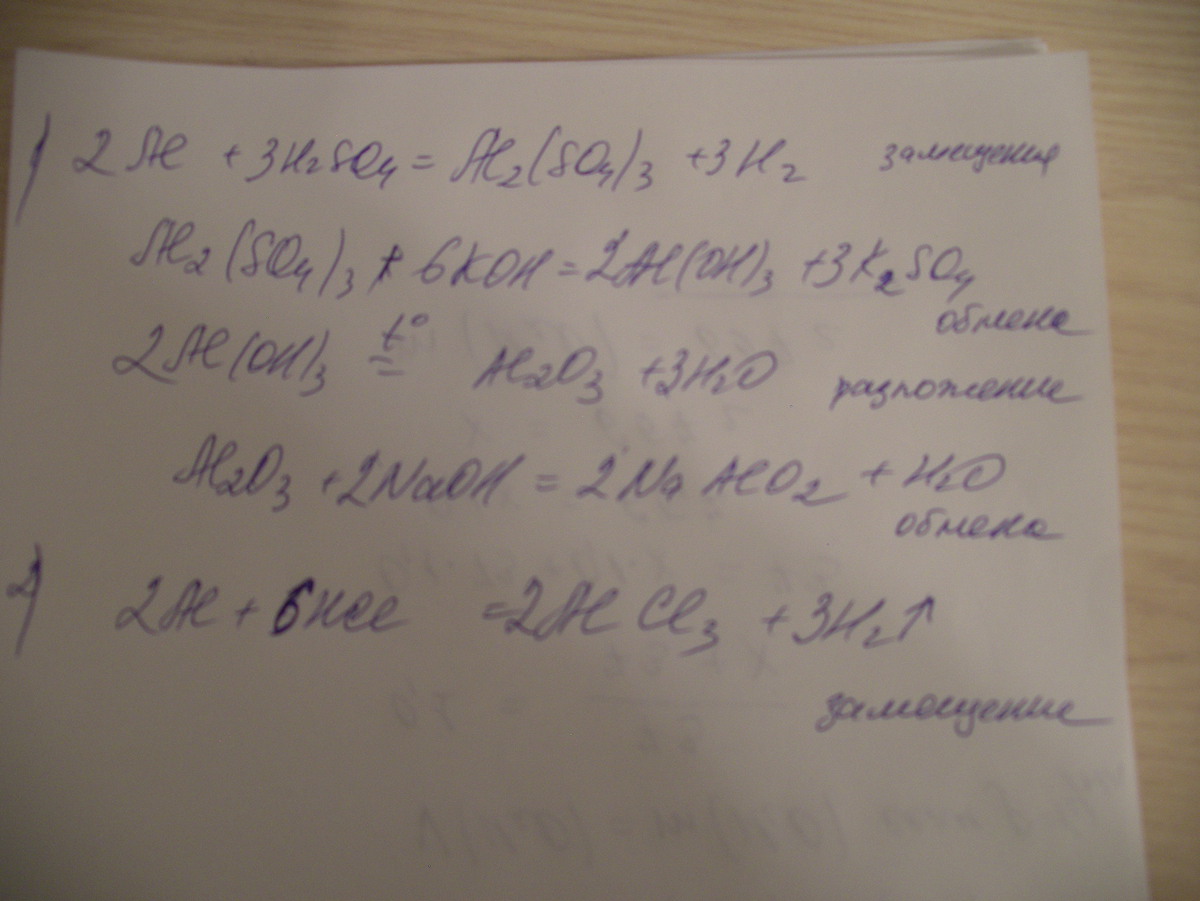 1) 2Al + 3H₂SO₄ = Al₂(SO₄)₃ + 3H₂ замещения
Al₂(SO₄)₃ + 6KOH = 2Al(OH)₃ + 3K₂SO₄
обмена
2Al(OH)₃ t° = Al₂O₃ + 3H₂O разложение
Al₂O₃ + 2NaOH = 2NaAlO₂ + H₂O
обмена
2) 2Al + 6HCl = 2AlCl₃ + 3H₂↑
замещение